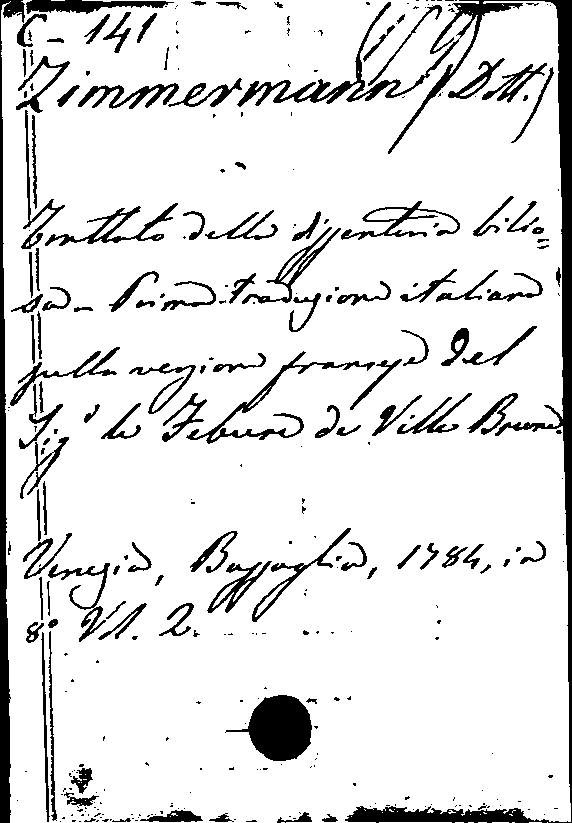 C - 141
Zimmermann (Dott.)
Trattato della dissenteria bilio=
sa - Prima traduzione italiana
sulla versione francese del
Sig.r le Febure de Ville Brune.
Venezia, Bassaglia, 1784, in
8º Vol. 2.